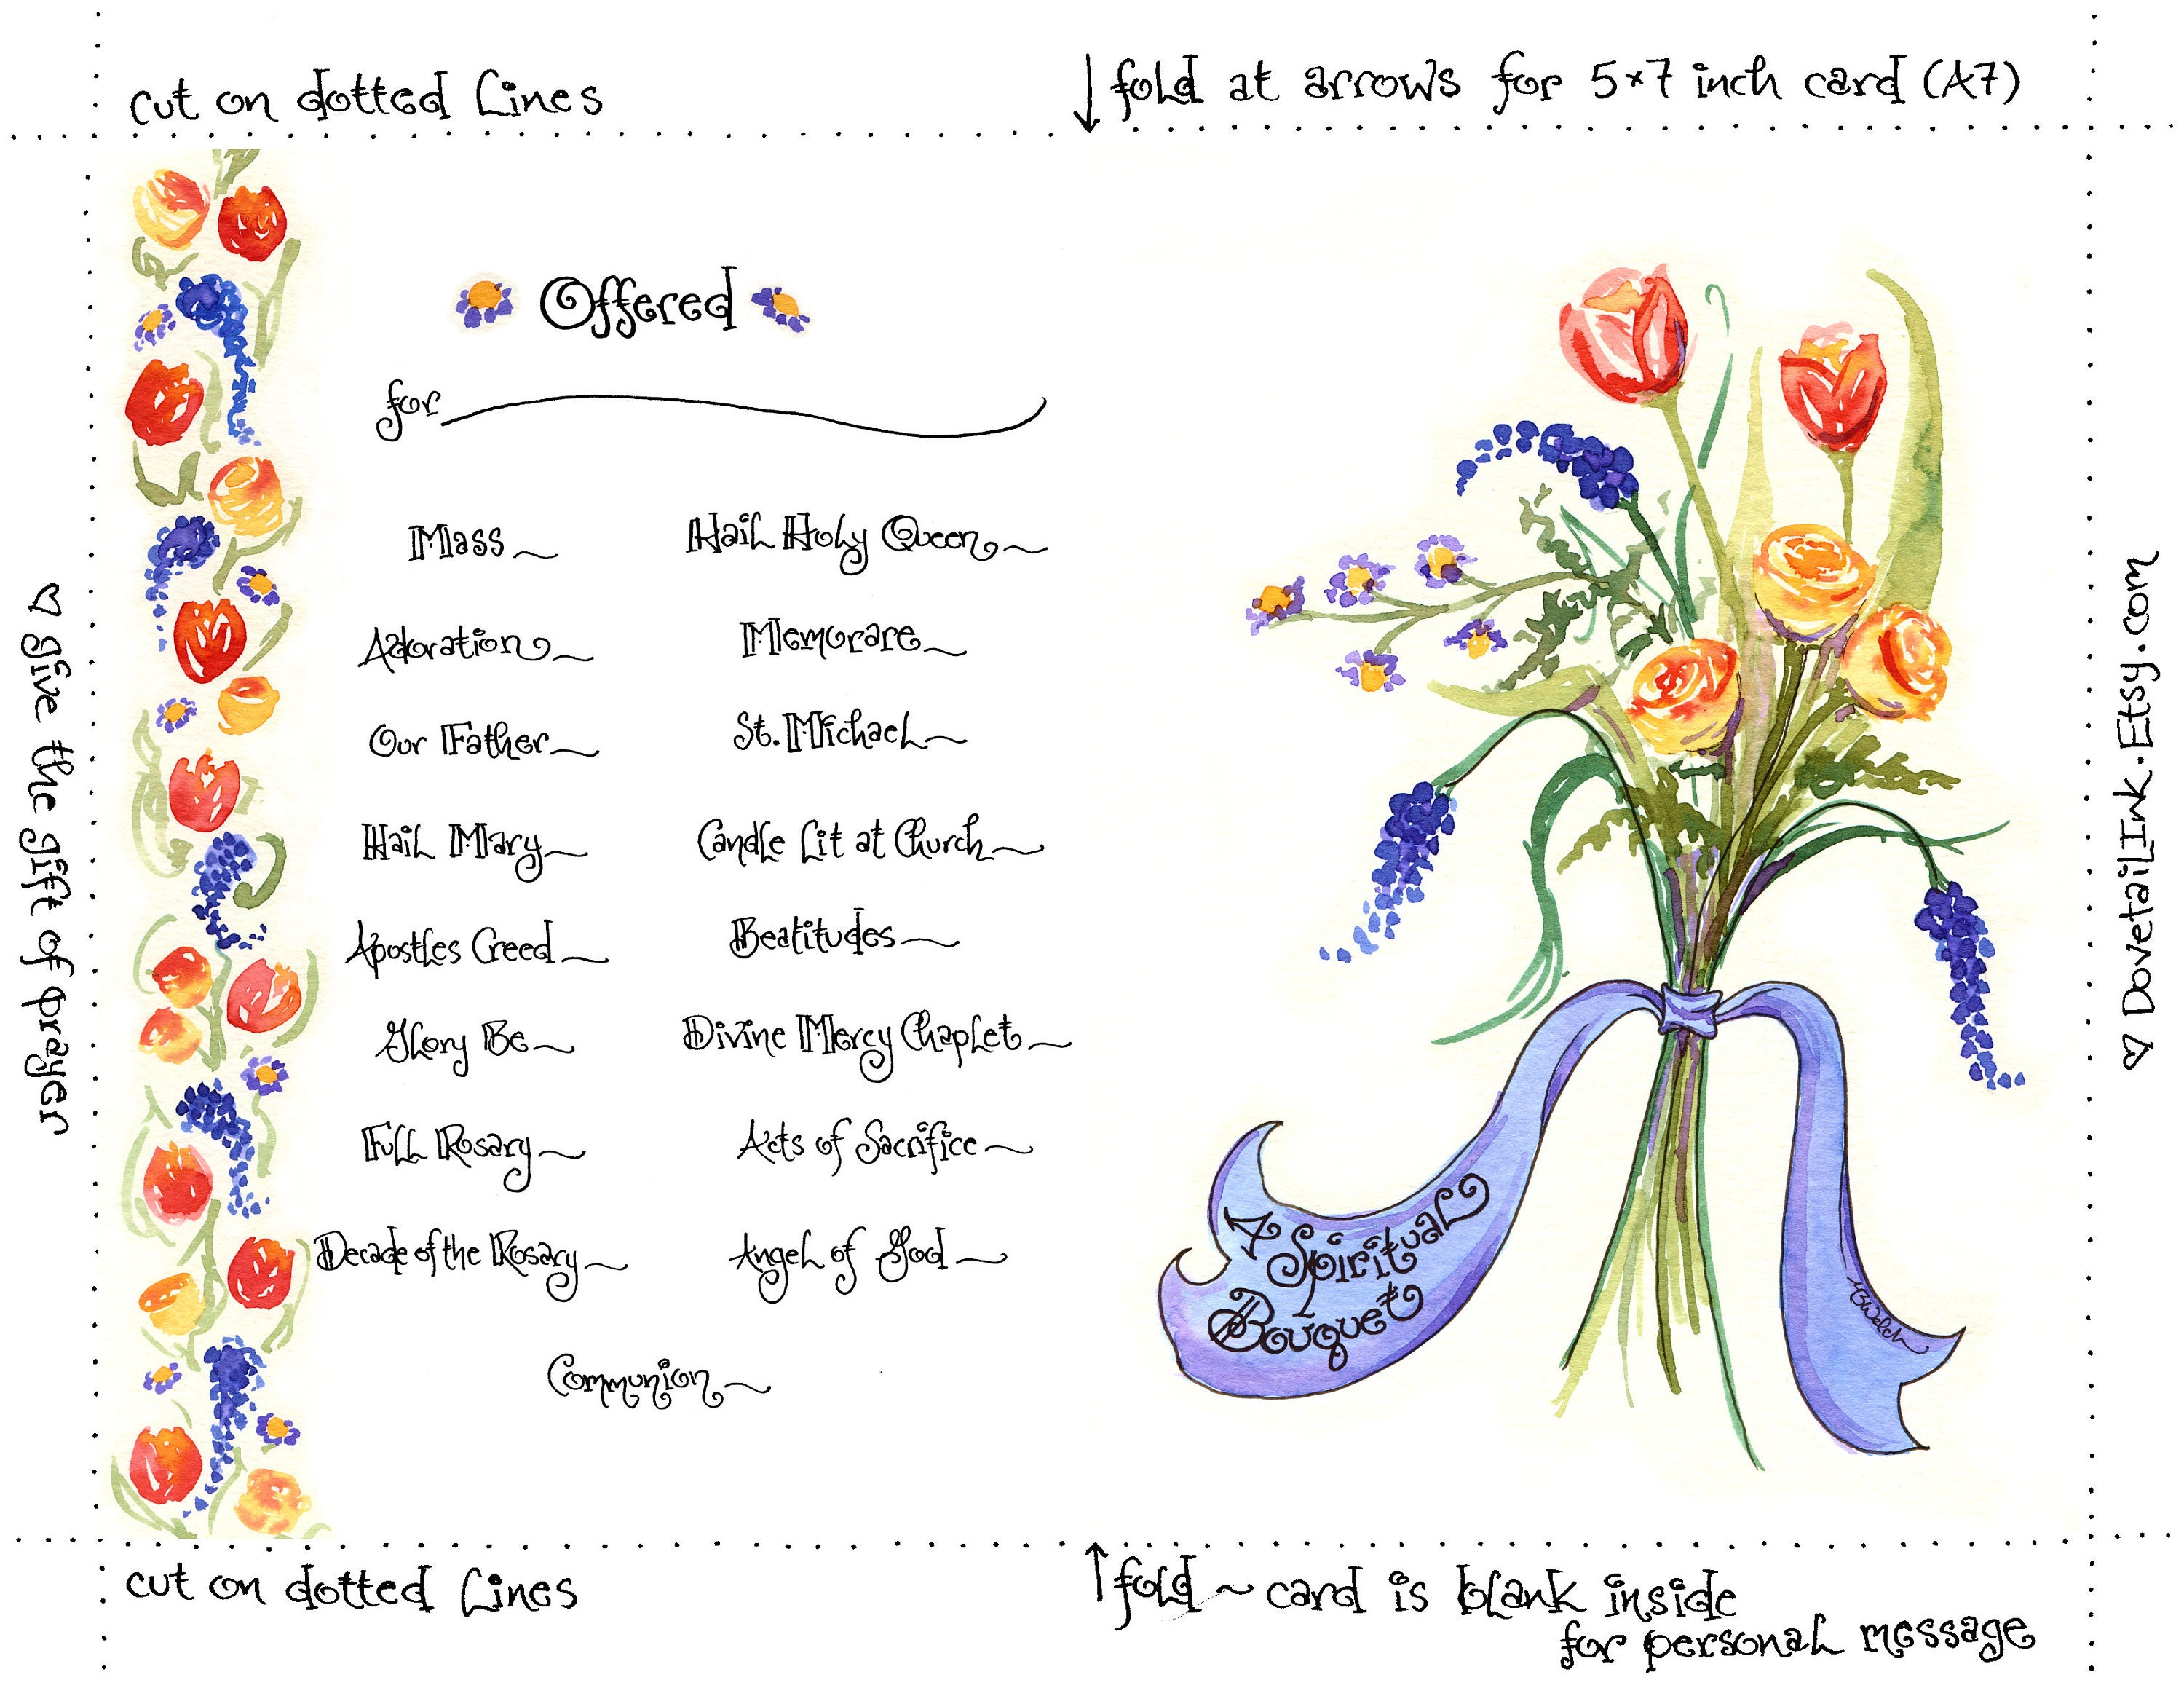 cut on dotted lines
↓ fold at arrows for 5×7 inch card (A7)
♡ give the gift of prayer
Offered
for
Mass ~
Adoration ~
Our Father ~
Hail Mary ~
Apostles Creed ~
Glory Be ~
Full Rosary ~
Decade of the Rosary ~
Hail Holy Queen ~
Memorare ~
St. Michael ~
Candle Lit at Church ~
Beatitudes ~
Divine Mercy Chaplet ~
Acts of Sacrifice ~
Angel of God ~
Communion ~
A Spiritual
Bouquet
MBWelch
♡ DovetailInk.Etsy.com
cut on dotted lines
↑ fold ~ card is blank inside
for personal message